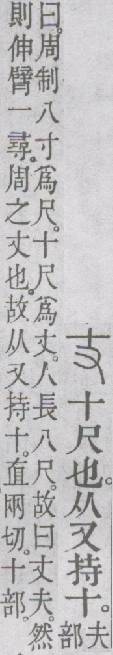 丈十尺也。从又持十。夫
部
曰。周制八寸爲尺。十尺爲丈。人長八尺。故曰丈夫。然
則伸臂一尋。周之丈也。故从又持十。直兩切。十部。